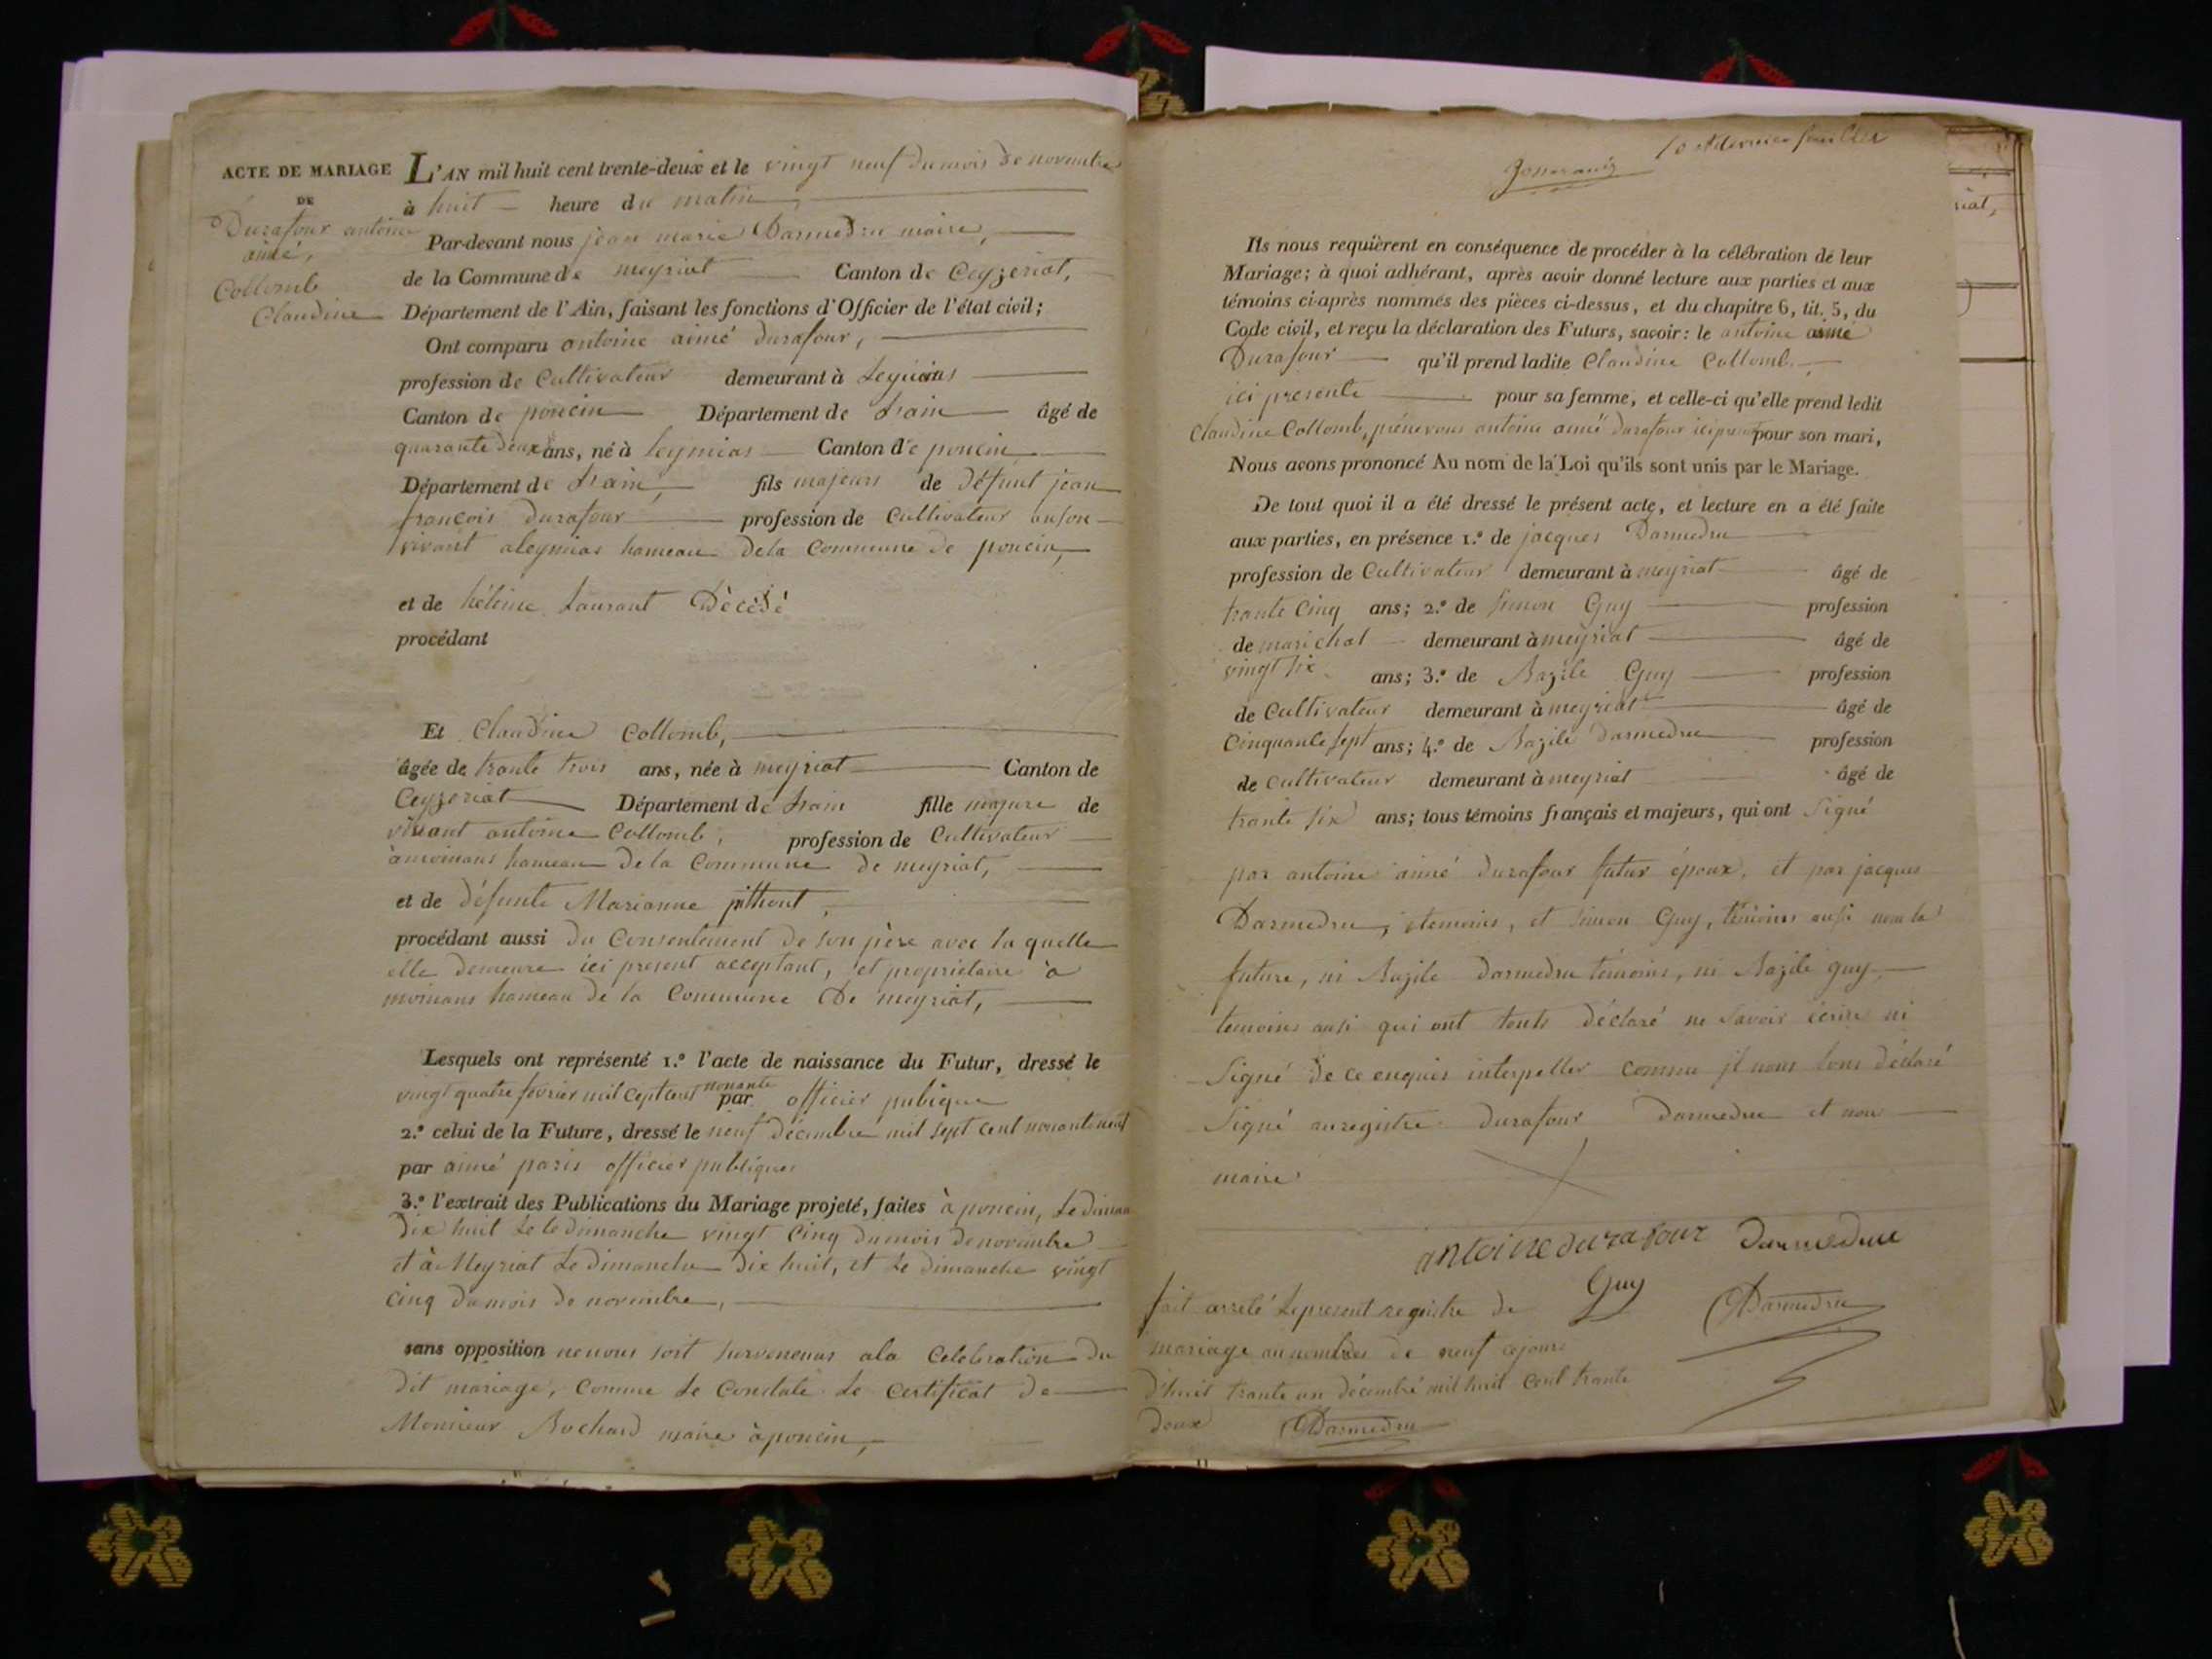 ACTE DE MARIAGE
DE
Durafour antoine
aimé,
Collomb
Claudine
L'AN mil huit cent trente-deux et le vingt neuf du mois de novembre
à huit heure du matin,
Par-devant nous jean marie Darmedru maire,
de la Commune de meyriat Canton de Ceyzeriat,
Département de l'Ain, faisant les fonctions d'Officier de l'état civil;
Ont comparu antoine aimé durafour,
profession de Cultivateur demeurant à Leymias
Canton de poncin Département de Lain âgé de
quarante deux ans, né à Leymias Canton de poncin
Département de Lain, fils majeurs de défunt jean
francois durafour profession de Cultivateur
vivant aleymias hameau dela Commune de poncin,
et de hélène Laurant Dècèdé
procédant
Et Claudine Collomb,
âgée de trante trois ans, née à meyriat Canton de
Ceyzeriat Département de Lain fille majure de
vivant antoine Collomb, profession de Cultivateur
hameau de la Commune de meyriat,
et de défunte Marianne
procédant aussi du Consentement de son père avec la quelle
elle demeure ici present acceptant, et propriétaire à
hameau de la Commune De meyriat,
Lesquels ont représenté 1.º l'acte de naissance du Futur, dressé le
vingt quatre fevrier mil cept cent nonante par officier publique
2.º celui de la Future, dressé le neuf décembre mil sept cent nonante neuf
par aimé paris officier publiques
3.º l'extrait des Publications du Mariage projeté, faites à poncin, Le
dix huit Le le dimanche vingt Cinq du mois de novembre
et à Meyriat Le dimanche dix huit, et Le dimanche vingt
cinq du mois de novembre,
sans opposition ne nous soit ala Celebration du
dit mariage, comme Le Constate Le Certificat de
Monsieur Bochard maire à poncin,
10 et dernier feuillet
Ils nous requièrent en conséquence de procéder à la célébration de leur
Mariage; à quoi adhérant, après avoir donné lecture aux parties et aux
témoins ci-après nommés des pièces ci-dessus, et du chapitre 6, tit. 5, du
Code civil, et reçu la déclaration des Futurs, savoir: le antoine aimé
Durafour qu'il prend ladite Claudine Collomb
ici presente pour sa femme, et celle-ci qu'elle prend ledit
Claudine Collomb, antoine aimé durafour pour son mari,
Nous avons prononcé Au nom de la Loi qu'ils sont unis par le Mariage.
De tout quoi il a été dressé le présent acte, et lecture en a été faite
aux parties, en présence 1.º de jacques Darmedru
profession de Cultivateur demeurant à meyriat âgé de
trante Cinq ans; 2.º de Simon Guy profession
de marichal demeurant à meyriat âgé de
vingt six ans; 3.º de Bazile Guy profession
de Cultivateur demeurant à meyriat âgé de
Cinquante Sept ans; 4.º de Bazile Darmedru profession
de cultivateur demeurant à meyriat âgé de
trante six ans; tous témoins français et majeurs, qui ont Signé
par antoine aimé durafour futur époux, et par jacques
Darmedru, temoins, et Simon Guy, témoins ausi non la
future, ni Bazile darmedru témoins, ni Bazile guy
temoins ausi qui ont touts déclaré ne Savoir écrire ni
Signé de ce enquis interpeller comme il nous lons déclaré
Signé au registre durafour Darmedru et nou
maire
antoine durafour darmedru
Guy
Darmedru
fait arreté Le present registre de
mariage au nombres de neuf cejours
d'huit trante un décembre mil huit Cent trante
deux Darmedru